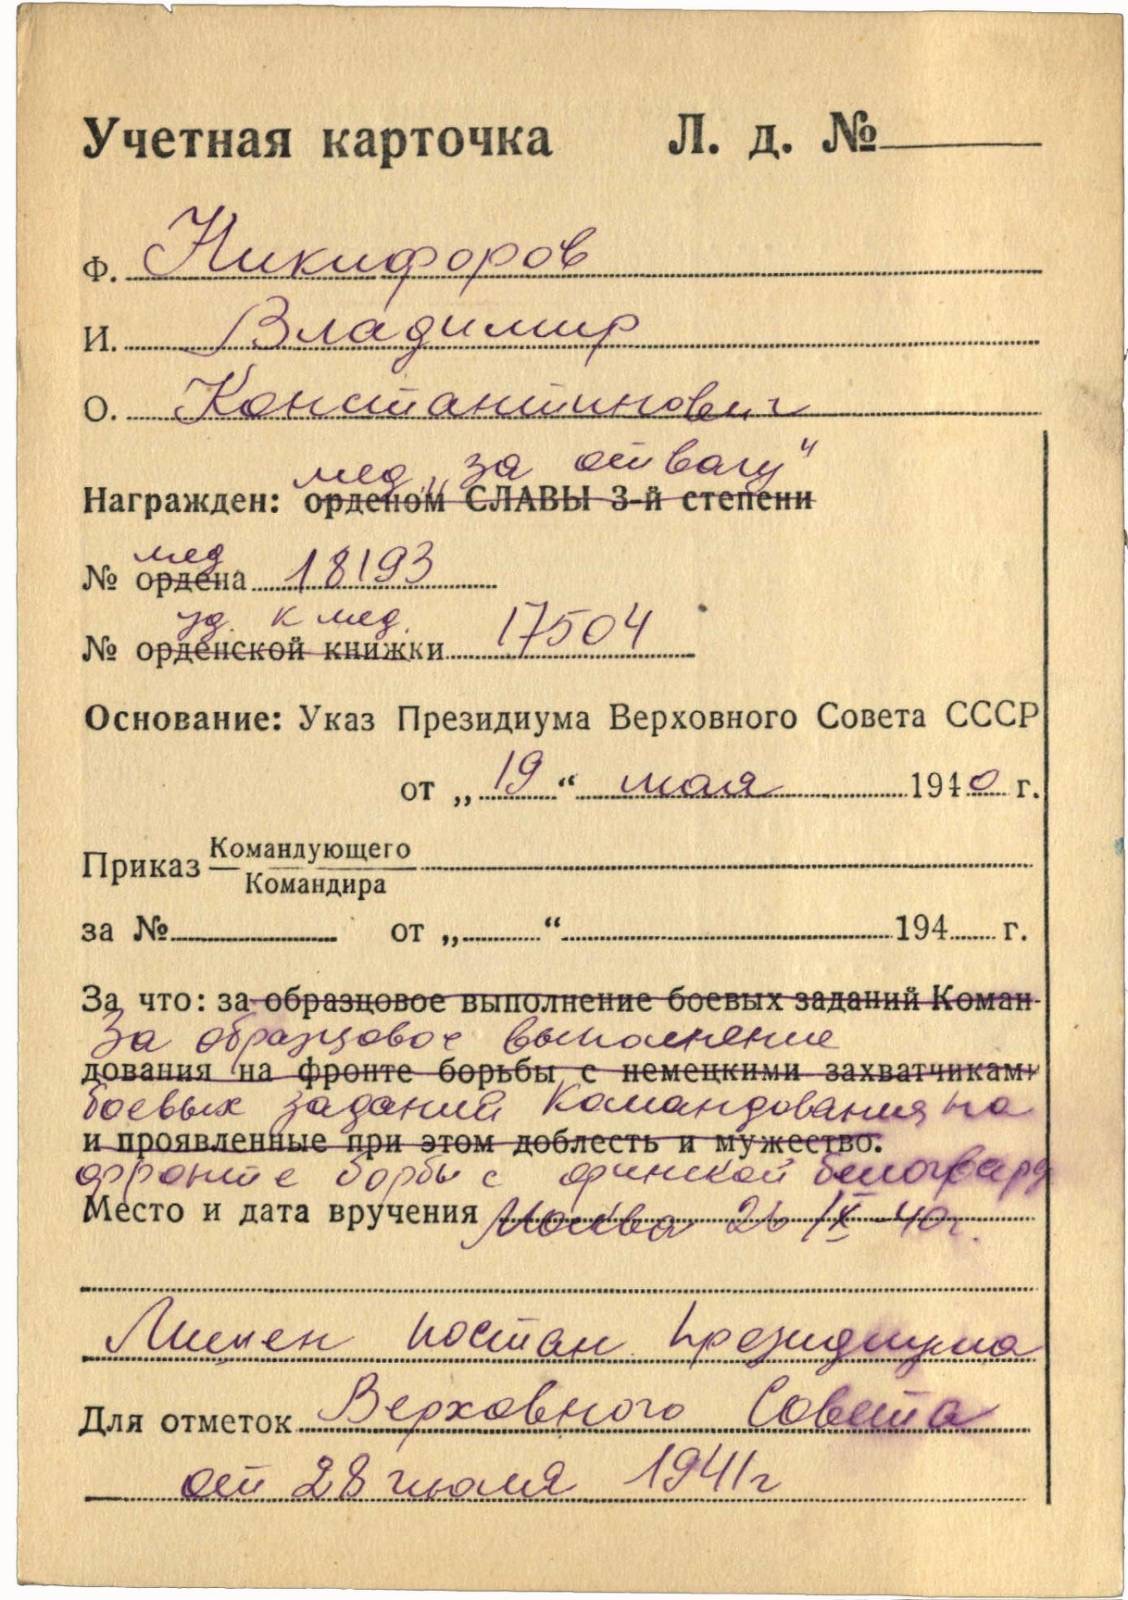 Учетная карточка Л. д. №
Ф. Никифоров
И. Владимир
О. Константинович
мед. „за отвагу"
Награжден: орденом СЛАВЫ 3-й степени
мед
№ ордена 18193
уд. к мед.
№ орденской книжки 17504
Основание: Указ Президиума Верховного Совета СССР
от „19“ мая 1940 г.
Приказ Командующего
Командира
за № от „ “ 194 г.
За что: за образцовое выполнение боевых заданий Коман-
За образцовое выполнение
дования на фронте борьбы с немецкими захватчиками
боевых заданий Командования на
и проявленные при этом доблесть и мужество.
фронте борбы с финской белогвард
Место и дата вручения Москва 26 IX 40г.
Лишен постан. Президиума
Для отметок Верховного Совета
от 28 июля 1941г